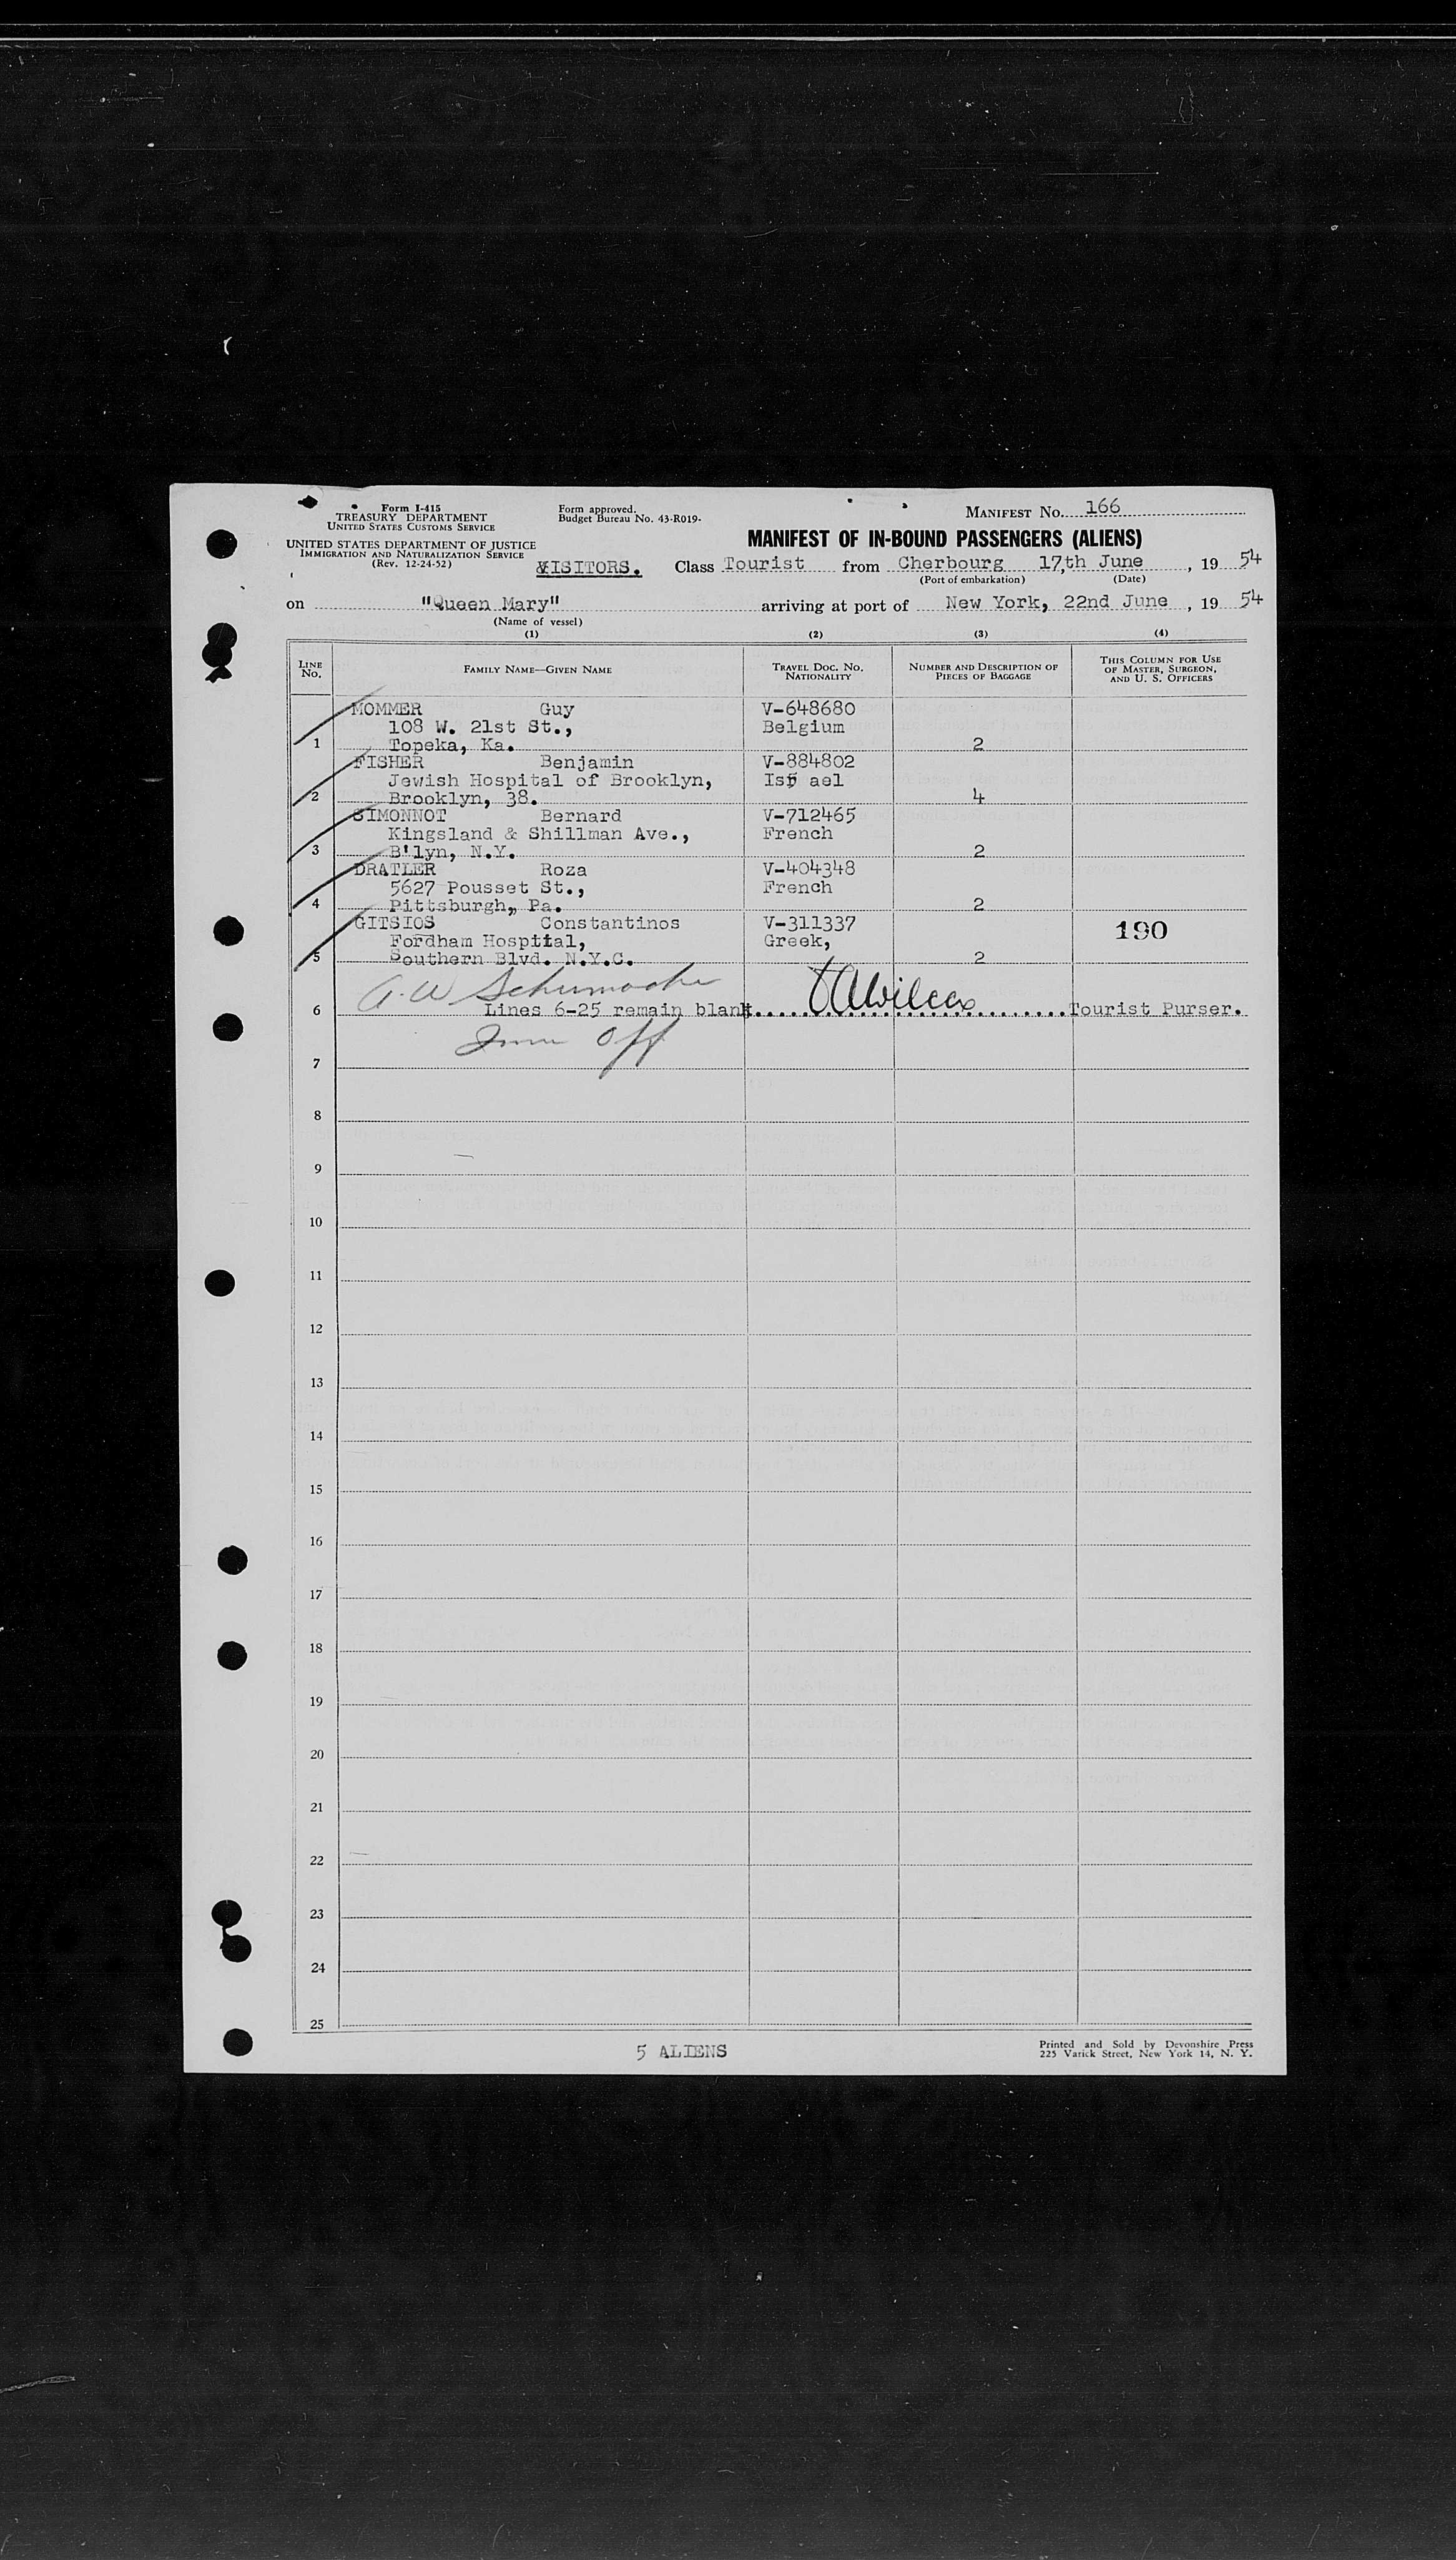 Form I-415
TREASURY DEPARTMENT
UNITED STATES CUSTOMS SERVICE
UNITED STATES DEPARTMENT OF JUSTICE
IMMIGRATION AND NATURALIZATION SERVICE
(Rev. 12-24-52)
Form approved.
Budget Bureau No. 43-R019-
MANIFEST No. 166
MANIFEST OF IN-BOUND PASSENGERS (ALIENS)
VISITORS. Class Tourist from Cherbourg 17,th June, 19 54
(Port of embarkation) (Date)
on "Queen Mary" arriving at port of New York, 22nd June, 19 54
(Name of vessel)
(1) (2) (3) (4)
LINE No. FAMILY NAME—GIVEN NAME TRAVEL DOC. No. NATIONALITY NUMBER AND DESCRIPTION OF PIECES OF BAGGAGE THIS COLUMN FOR USE OF MASTER, SURGEON, AND U. S. OFFICERS
MOMMER Guy V-648680
108 W. 21st St., Belgium
1 Topeka, Ka. 2
FISHER Benjamin V-884802
Jewish Hospital of Brooklyn, Israel
2 Brooklyn, 38. 4
SIMONNOT Bernard V-712465
Kingsland & Shillman Ave., French
3 B'lyn, N.Y. 2
DRATLER Roza V-404348
5627 Pousset St., French
4 Pittsburgh, Pa. 2
GITSIOS Constantinos V-311337 190
Fordham Hospital, Greek,
5 Southern Blvd. N.Y.C. 2
A.W Schumacher
6 Lines 6-25 remain blank. Wilcox Tourist Purser.
Imm Off
7
8
9
10
11
12
13
14
15
16
17
18
19
20
21
22
23
24
25
5 ALIENS
Printed and Sold by Devonshire Press
225 Varick Street, New York 14, N. Y.